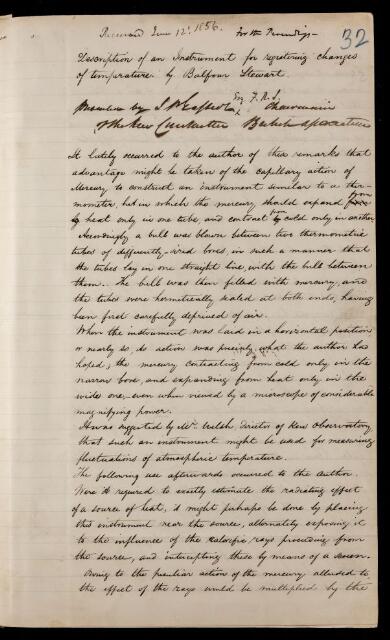 Received June 12, 1856. For the Proceedings — 32
Description of an Instrument for registering changes
of temperature by Balfour Stewart.
by J. P. Gassiot Esq. F.R.S. Chairman
of the Kew Committee British Association
It lately occurred to the author of these remarks that
advantage might be taken of the capillary action of
Mercury to construct an instrument similar to a ther-
mometer, but in which the mercury should expand from
heat only in one tube, and contract from cold only in another
Accordingly a bulb was blown between two thermometric
tubes of differently-sized bores, in such a manner that
the tubes lay in one straight line, with the bulb between
them. The bulb was then filled with mercury, and
the tubes were hermetically sealed at both ends, having
been first carefully deprived of air.
When the instrument was laid in a horizontal position
or nearly so, its action was precisely what the author had
hoped; the mercury contracting from cold only in the
narrow bore, and expanding from heat only in the
wide one, even when viewed by a microscope of considerable
magnifying power.
It was suggested by Mr. Welsh Director of Kew Observatory
that such an instrument might be used for measuring
fluctuations of atmospheric temperature.
The following use afterwards occurred to the author.
Were it required to exactly estimate the radiating effect
of a source of heat, it might perhaps be done by placing
this instrument near the source, alternately exposing it
to the influence of the calorific rays proceeding from
the source, and intercepting these by means of a screen.
Owing to the peculiar action of the mercury alluded to
the effect of the rays would be multiplied by the